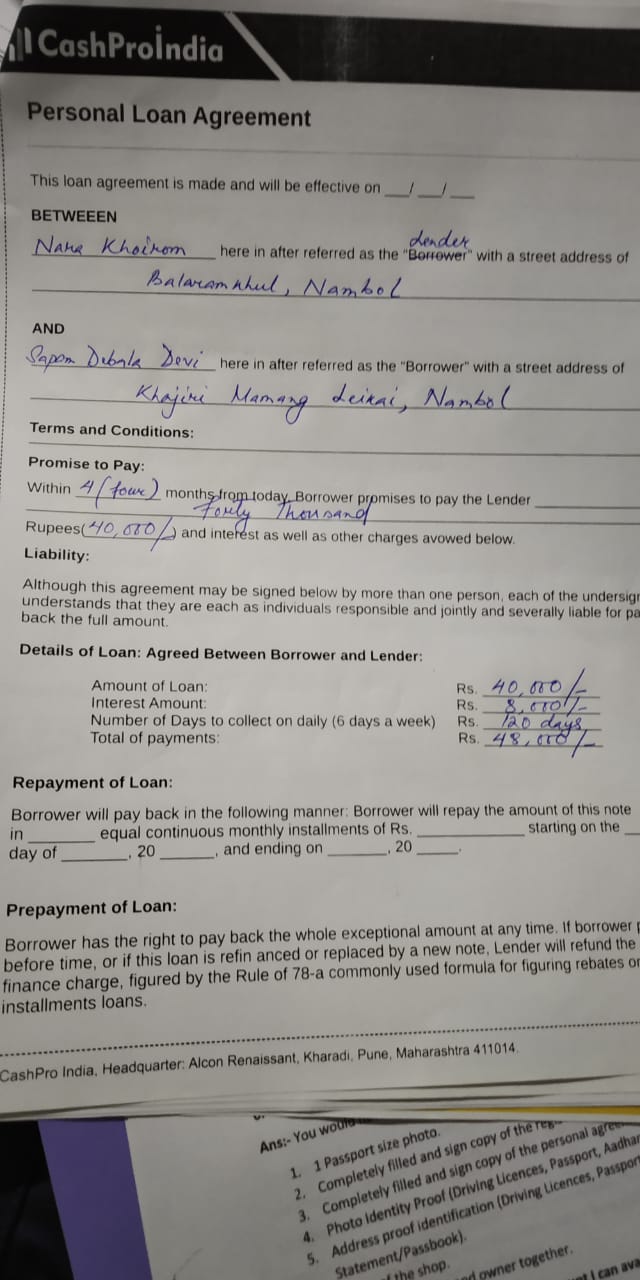 CashProIndia
Personal Loan Agreement
This loan agreement is made and will be effective on __/__/__
BETWEEEN
Lender
Nara Khoirom here in after referred as the "Borrower" with a street address of
Balaramkhul, Nambol
AND
Sapam Debala Devi here in after referred as the "Borrower" with a street address of
Khajiri Mamang Leikai, Nambol
Terms and Conditions:
Promise to Pay:
Within 4 (four) months from today, Borrower promises to pay the Lender ________
Forty Thousand
Rupees(40,000/-) and interest as well as other charges avowed below.
Liability:
Although this agreement may be signed below by more than one person, each of the
understands that they are each as individuals responsible and jointly and severally liable for
back the full amount.
Details of Loan: Agreed Between Borrower and Lender:
Amount of Loan: Rs. 40,000/-
Interest Amount: Rs. 8,000/-
Number of Days to collect on daily (6 days a week) Rs. 120 days
Total of payments: Rs. 48,000/-
Repayment of Loan:
Borrower will pay back in the following manner: Borrower will repay the amount of this note
in ______ equal continuous monthly installments of Rs. ________ starting on the __
day of ______, 20 _____, and ending on ______, 20 ____.
Prepayment of Loan:
Borrower has the right to pay back the whole exceptional amount at any time. If borrower
before time, or if this loan is refin anced or replaced by a new note, Lender will refund the
finance charge, figured by the Rule of 78-a commonly used formula for figuring rebates on
installments loans.
CashPro India, Headquarter: Alcon Renaissant, Kharadi, Pune, Maharashtra 411014.
Ans:- You would
1. 1 Passport size photo.
2. Completely filled and sign copy of the
3. Completely filled and sign copy of the personal
4. Photo Identity Proof (Driving Licences, Passport, Aadhar
5. Address proof identification (Driving Licences, Passport
Statement/Passbook).
the shop.
owner together.
I can